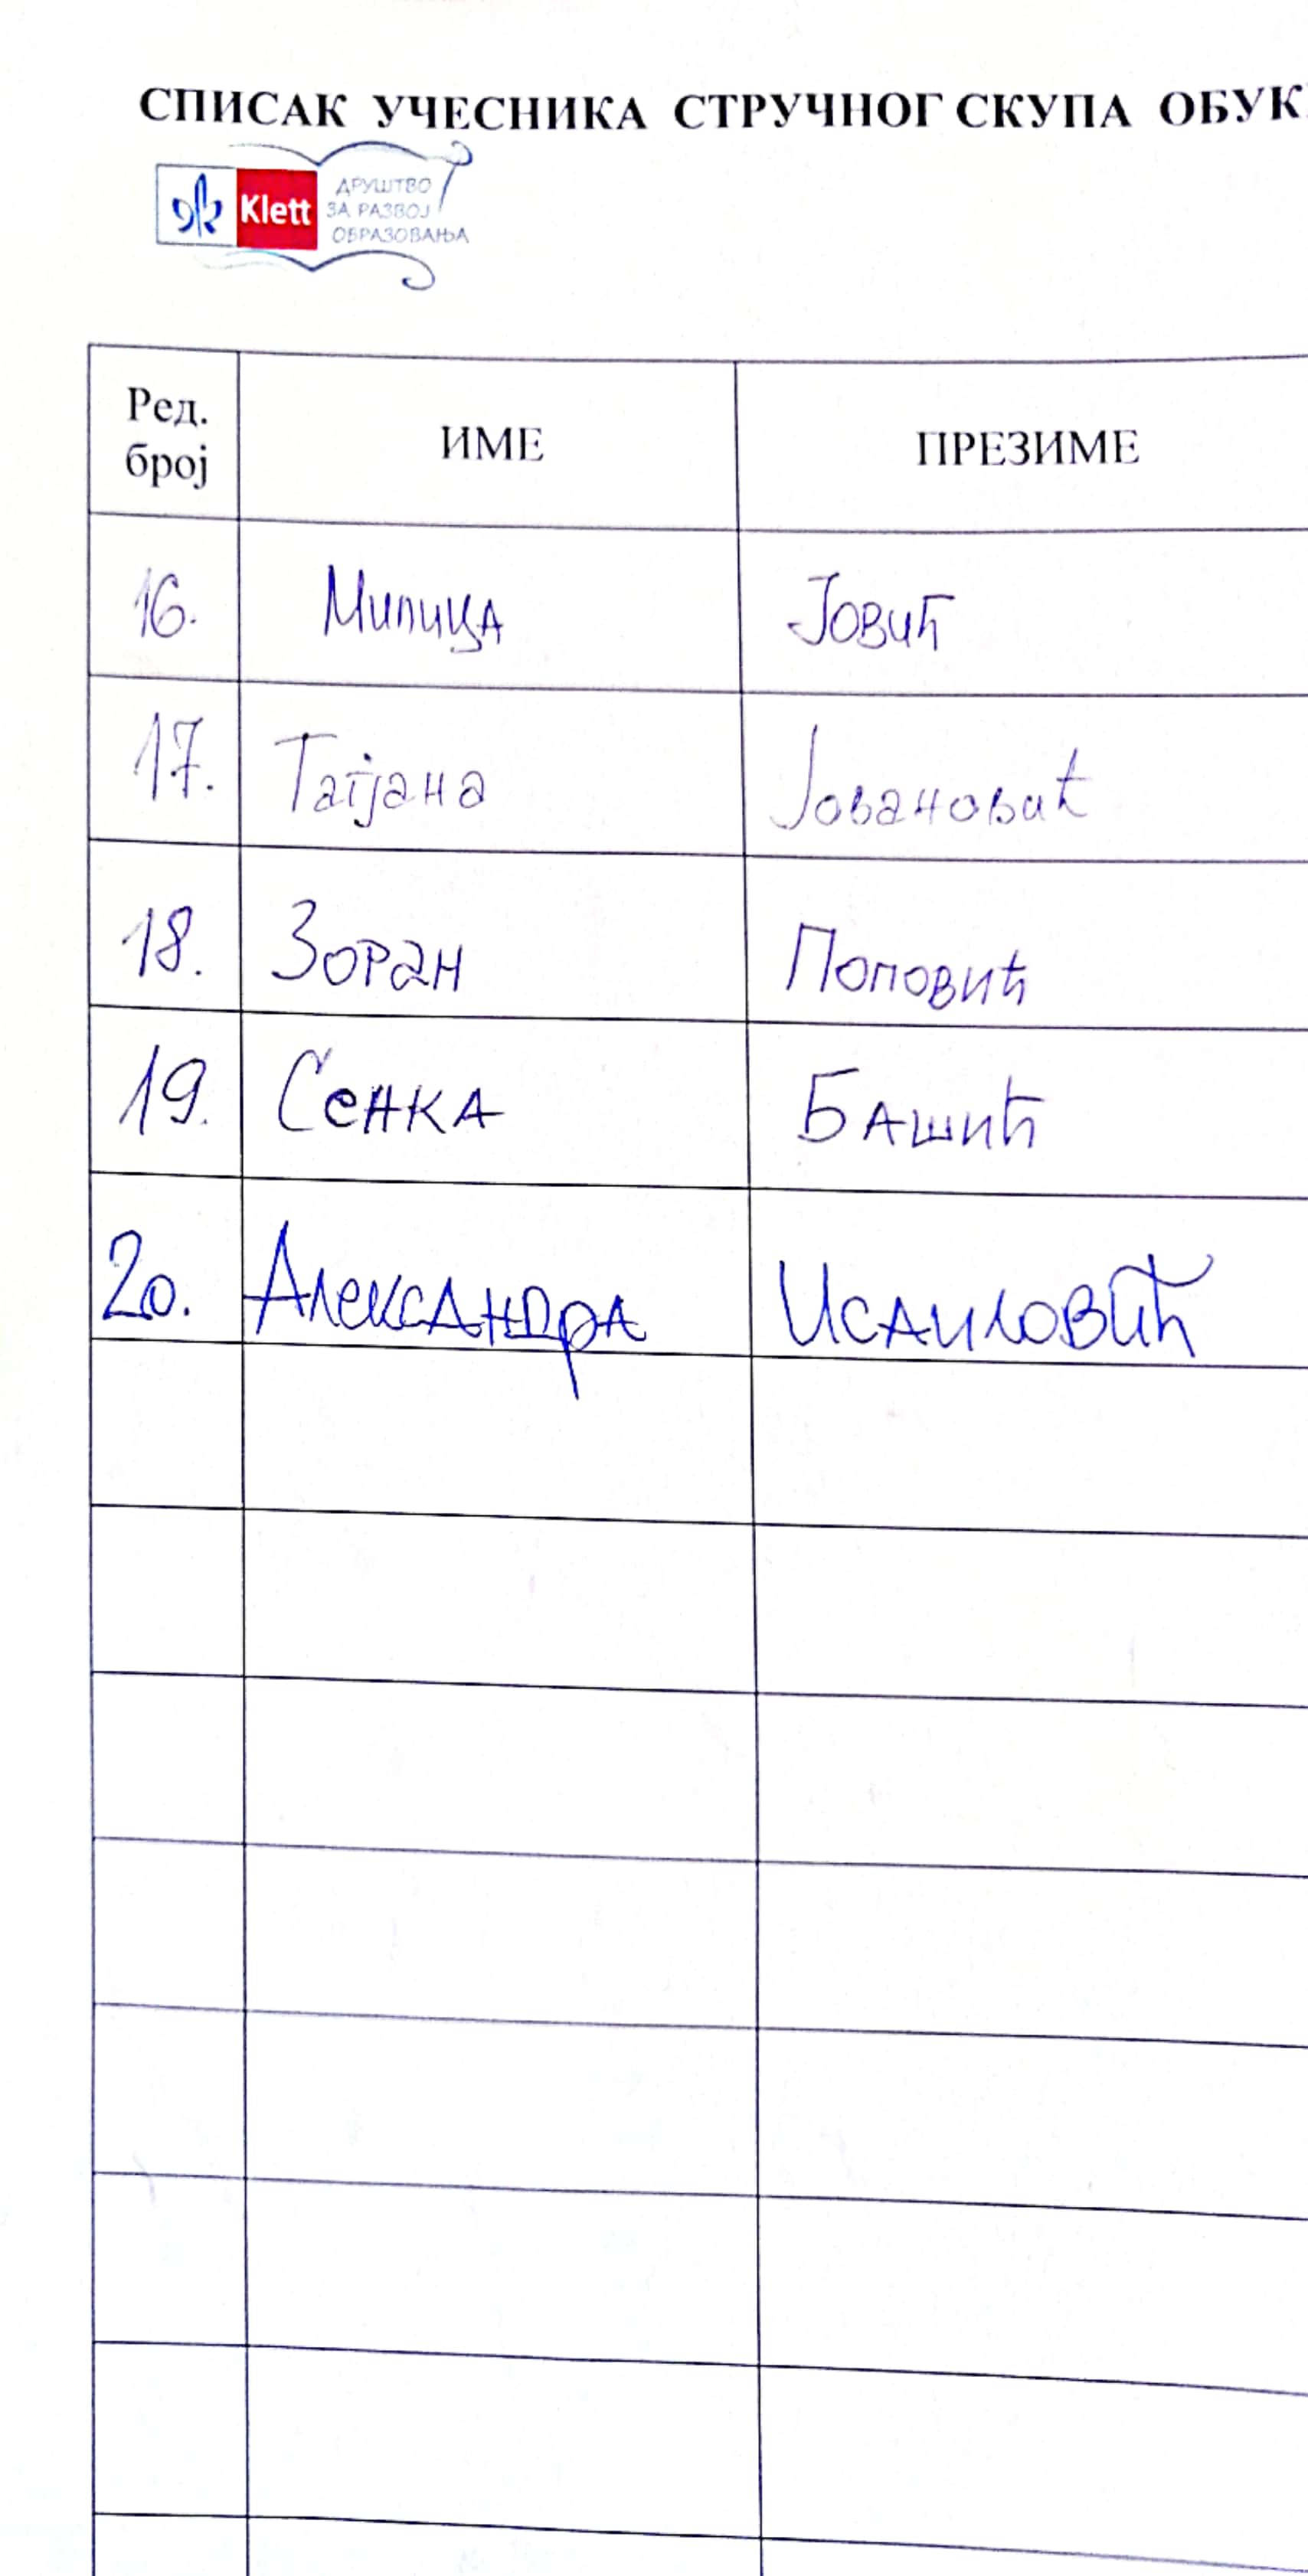 СПИСАК УЧЕСНИКА СТРУЧНОГ СКУПА ОБУК
Klett
ДРУШТВО
ЗА РАЗВОЈ
ОБРАЗОВАЊА
Ред. број ИМЕ ПРЕЗИМЕ
16. Милица Јовић
17. Татјана Јовановић
18. Зоран Поповић
19. Сенка Башић
20. Александра Исаиловић